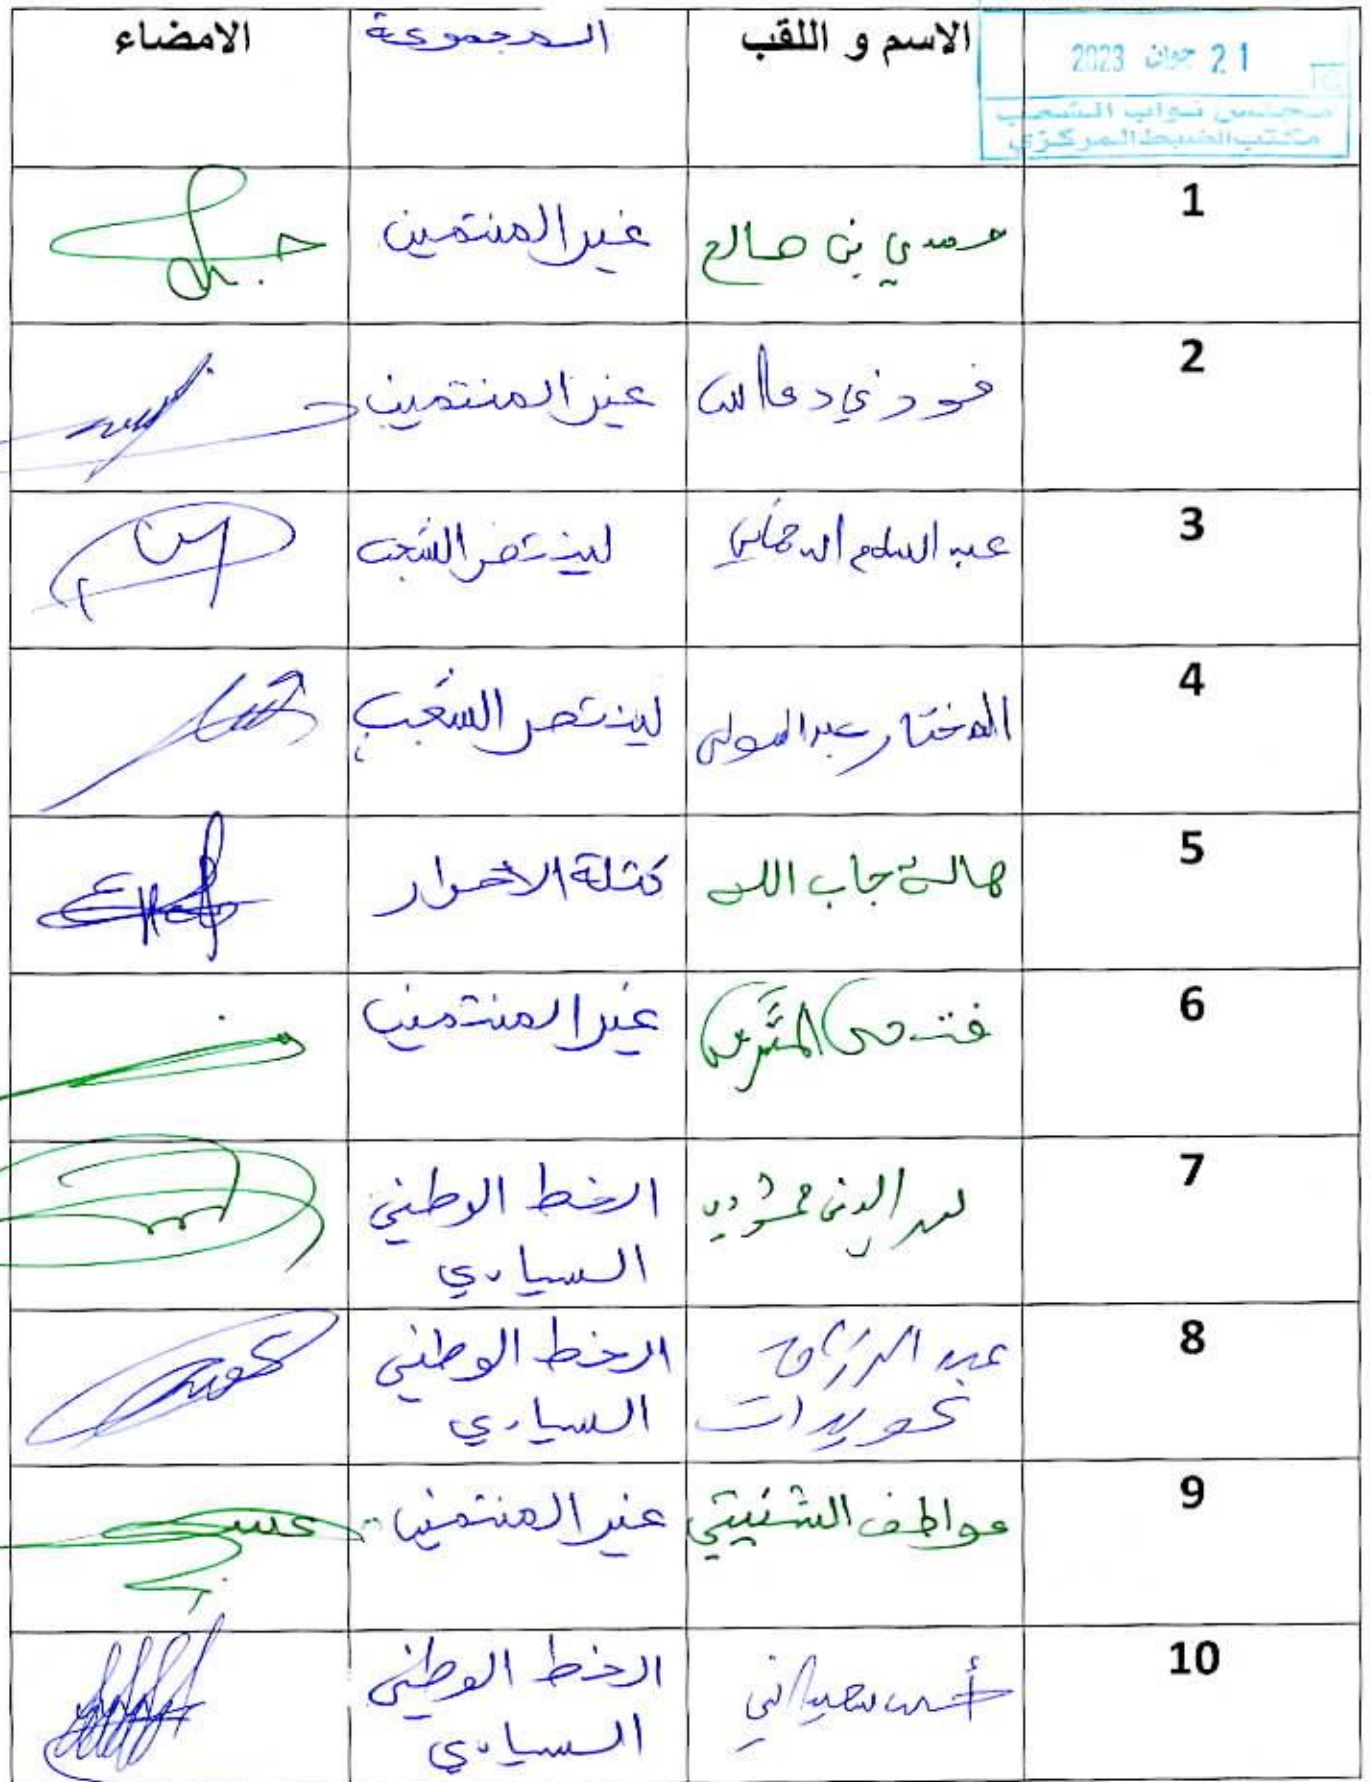 21 جوان 2023
مجلس نواب الشعب
مكتب الضبط المركزي
الاسم و اللقب المجموعة الامضاء
1 حمدي بن صالح غير المنتمين
2 فوزي دعاس غير المنتمين
3 عبد السلام الدحماني لينتصر الشعب
4 المختار عبد المولى لينتصر الشعب
5 هالة جاب الله كتلة الاحرار
6 فتحي المشرقي غير المنتمين
7 الدين الخط الوطني
السيادي
8 عبد الرزاق الخط الوطني
عويدات السيادي
9 عواطف الشنيتي غير المنتمين
10 أحمد سعيداني الخط الوطني
السيادي